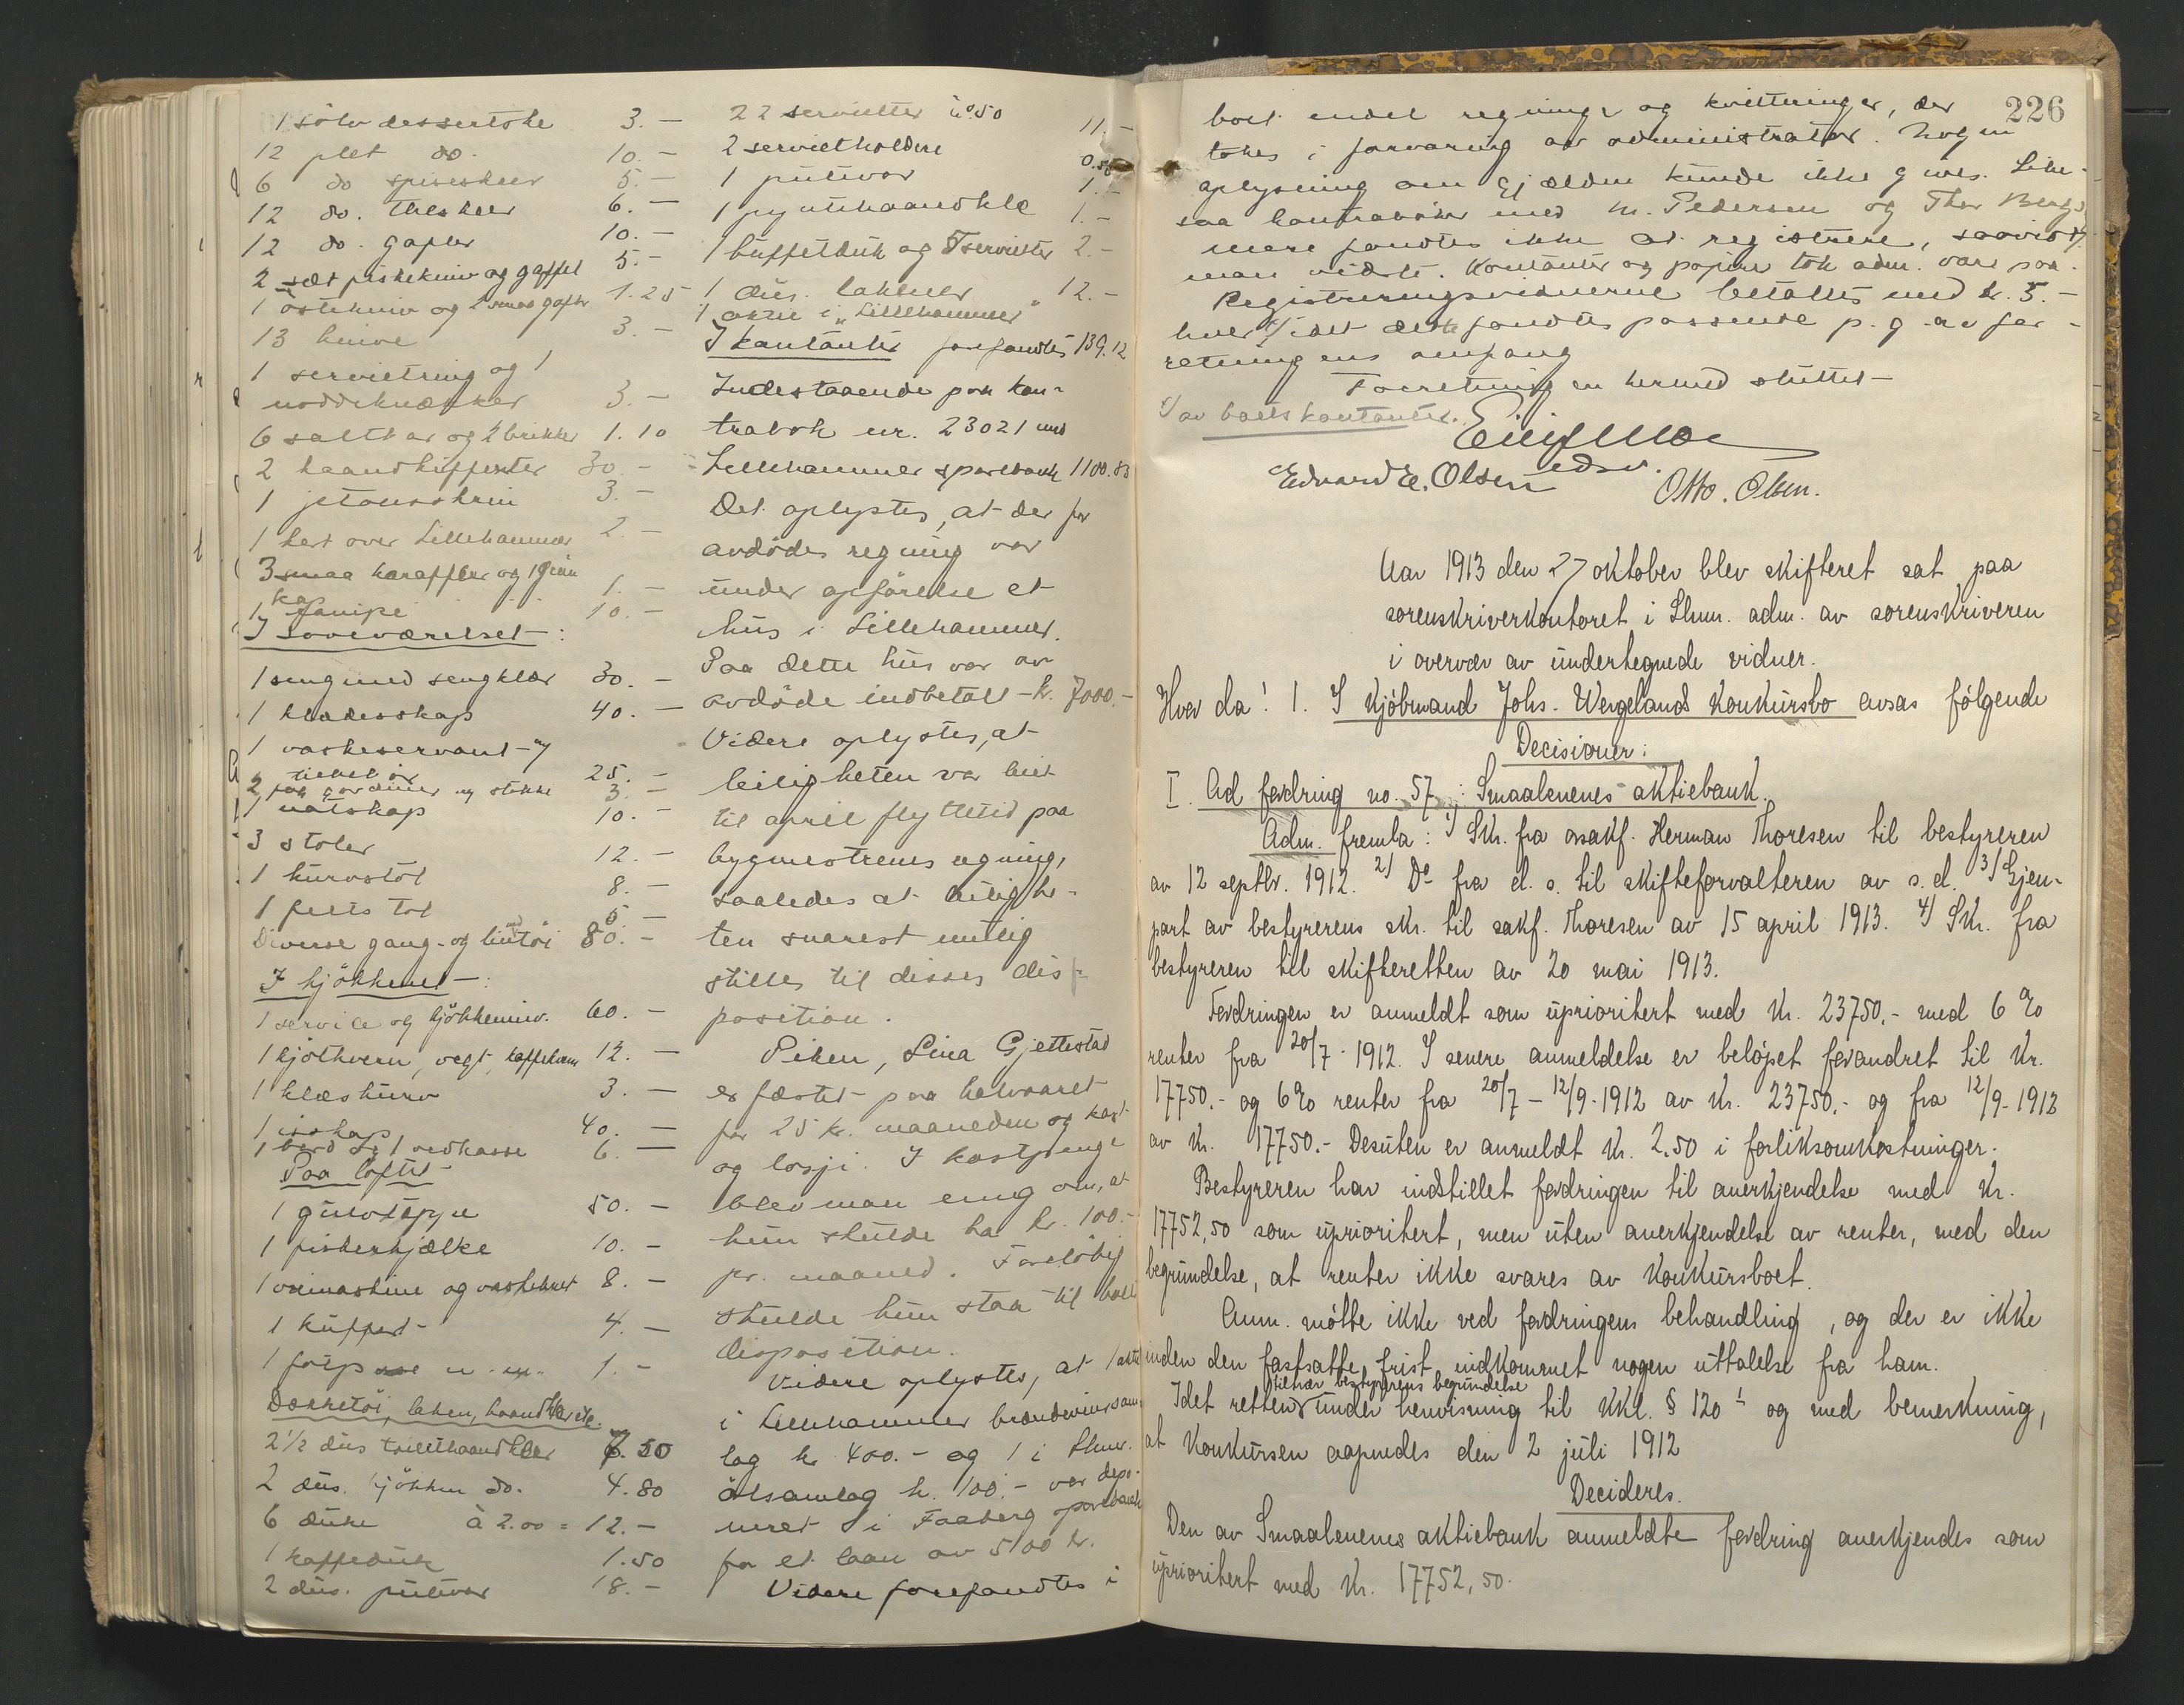 1 sølv dessertske 3.-
12 plet do. 10.-
6 do spiseskeer 5.-
12 do. theskeer 6.-
12 do. gafler 10.-
2 sæt fiskekniv og gaffel 5.-
1 ostekniv og 2 smaa gafler 1.25
13 knive 3.-
1 servietring og 1
nøddeknækker 3.-
6 saltkar og 2 brikker 1.10
2 haandkufferter 30.-
1 jetonsskrin 3.-
1 kart over Lillehammer 2.-
3 smaa karaffler og 1 1.-
1 lampe 10.-
I soveværelset:
1 seng med sengklær 30.-
1 klædesskap 40.-
1 vaskeservant m/
tilbehør 25.-
2 par gardiner og stokke 3.-
1 natskap 10.-
3 stoler 12.-
1 kurvstol 8.-
1 feltstol 5.-
Diverse gang- og lintøi 80.-
I kjøkkenet:
1 service og kjøkkeninv. 60.-
1 kjøtkvern, vegt, kaffekvern 12.-
1 klæskurv 3.-
1 isskap 40.-
1 bord og 1 vedkasse 6.-
Paa loftet
1 gulvtæppe 50.-
1 fiskerkjælke 10.-
1 vrimaskine og vaskebret 8.-
1 kuffert 4.-
1 1.-
Dækketøi, laken, haandklær etc.
2½ dus toiletthaandklær 7.50
2 dus. kjøkken do. 4.80
6 duke à 2.00 = 12.-
1 kaffeduk 1.50
2 dus. putevar 18.-
22 servietter à 0.50 11.-
2 servietholdere 0.50
1 putevar 1.-
1 pyntehaandkle 1.-
1 buffetduk og 7 servietter 2.-
1 dus. lakener 12.-
1 aktie i "Lillehammer"
I kontanter forefandtes 139.12
Indestaaende paa kon-
trabok nr. 23021 med
Lillehammer sparebank 1100.83
Det oplystes, at der for
avdødes regning var
under opførelse et
hus i Lillehammer.
Paa dette hus var av
avdøde indbetalt kr. 7000.-
Videre oplystes, at
leiligheten var leiet
til april flyttetid paa
bygmestrenes regning,
saaledes at leilighe-
ten snarest mulig
stilles til disses dis-
position.
Piken, Lina Gjettestad
er fæstet paa halvaaret
for 25 kr. maaneden og kost
og losji. I kostpenge
blev man enig om, at
hun skulde ha kr. 100.-
pr. maaned. Foreløbig
skulde hun staa til boets
disposition.
Videre oplystes, at 1 aktie
i Lillehammer brændevinssam-
lag kr 400.- og 1 i Lhmr.
ølsamlag kr. 100.- var depo-
neret i Faaberg sparebank
for et laan av 5100 kr.
Videre forefandtes i
226
boet endel regninger og kvitteringer, der
tokes i forvaring av administrator. Nogen
oplysning om gjælden kunde ikke gives. Like-
saa kontrabøker med M. Pedersen og Thor Berg.
mere fandtes ikke at registrere, saavidt
man vidste. Kontanter og papirer tok adm. vare paa.
Registreringsvidnerne betaltes med kr. 5.-
hver x/ idet dette fandtes passende p. g. av for-
retningens omfang
Forretningen hermed sluttet
x/ av boets kontanter.
Edvard E. Olsen
Otto. Olsen.
Aar 1913 den 27 oktober blev skifteret sat paa
sorenskriverkontoret i Lhmr. adm. av sorenskriveren
i overvær av undertegnede vidner.
Hvor da! 1. I Kjøbmand Johs. Wergelands Konkursbo avsas følgende
Decisioner:
I. Ad fordring no. 57: Smaalenenes aktiebank.
Adm. fremla: 1) Skr. fra ossakf. Herman Thoresen til bestyreren
av 12 septbr. 1912. 2) Do fra d. s. til skifteforvalteren av s. d. 3) Gjen-
part av bestyrerens skr. til sakf. Thoresen av 15 april 1913. 4) Skr. fra
bestyreren til skifteretten av 20 mai 1913.
Fordringen er anmeldt som uprioritert med Kr. 23750,- med 6 %
renter fra 20/7 1912. I senere anmeldelse er beløpet forandret til Kr.
17750.- og 6 % renter fra 20/7 - 12/9-1912 av Kr. 23750,- og fra 12/9-1912
av Kr. 17750.- Desuten er anmeldt Kr. 2.50 i forliksomkostninger.
Bestyreren har indstillet fordringen til anerkjendelse med Kr.
17752,50 som uprioritert, men uten anerkjendelse av renter, med den
begrundelse, at renter ikke svares av konkursboet.
Anm. møtte ikke ved fordringens behandling, og der er ikke
inden den fastsatte frist indkommet nogen uttalelse fra ham.
Idet retten tiltrær bestyrerens begrundelse under henvisning til KKl. § 120 og med bemerkning,
at konkursen aapnedes den 2 juli 1912
Decideres.
Den av Smaalenenes aktiebank anmeldte fordring anerkjendes som
uprioritert med Kr. 17752,50.